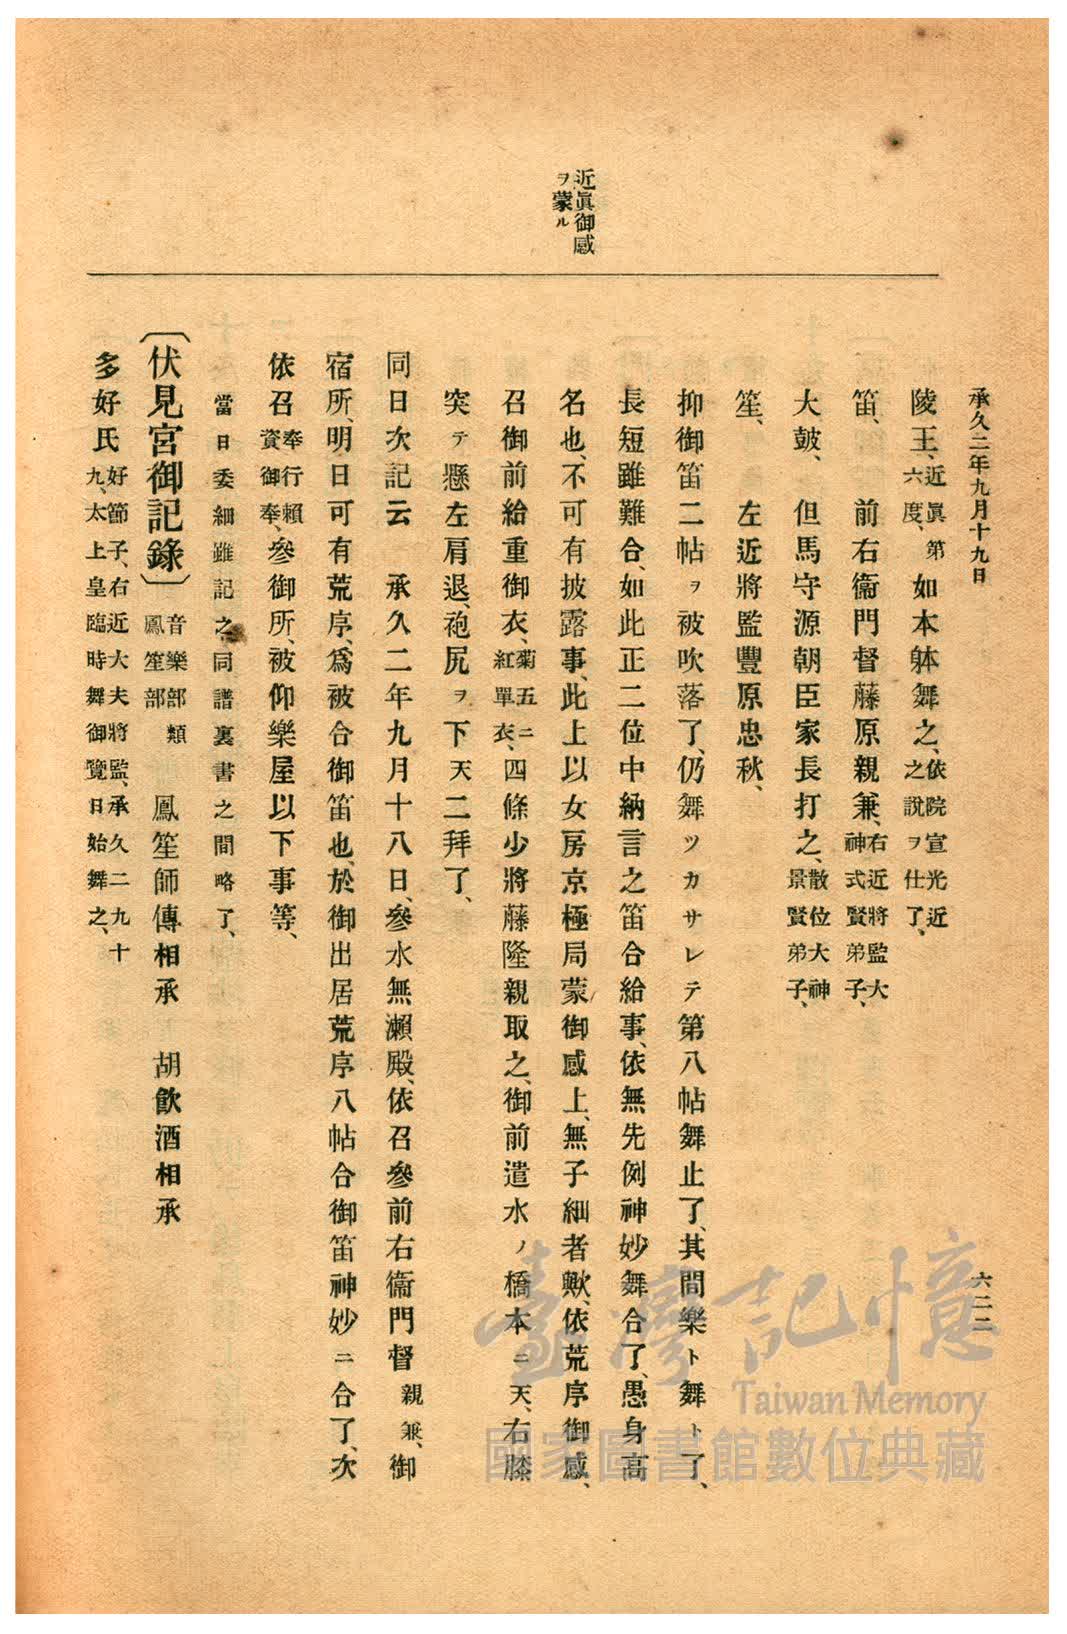 承久二年九月十九日
六二二
近眞御感
ヲ蒙ル
陵王、近眞、第六度、如本躰舞之、依院宣光近之說ヲ仕了、
笛、　前右衞門督藤原親兼、右近將監大神式賢弟子、
大鼓、　但馬守源朝臣家長打之、散位大神景賢弟子、
笙、　左近將監豐原忠秋、
抑御笛二帖ヲ被吹落了、仍舞ツカサレテ第八帖舞止了、其間樂ト舞ト了、
長短雖難合、如此正二位中納言之笛合給事、依無先例神妙舞合了、愚身高
名也、不可有披露事、此上以女房京極局蒙御感上、無子細者歟、依荒序御感、
召御前給重御衣、菊五ニ紅單衣、四條少將藤隆親取之、御前遣水ノ橋本ニ天、右膝
突テ懸左肩退、袍尻ヲ下天二拜了、
同日次記云　承久二年九月十八日、參水無瀨殿、依召參前右衞門督親兼、御
宿所、明日可有荒序、爲被合御笛也、於御出居荒序八帖合御笛神妙ニ合了、次
依召奉行賴資御奉、參御所、被仰樂屋以下事等、
當日委細雖記之、同譜裏書之間略了、
〔伏見宮御記錄〕音樂部類鳳笙部　鳳笙師傳相承　胡飮酒相承
多好氏好節子、右近大夫將監、承久二九十九、太上皇臨時舞御覽日始舞之、
臺灣記憶
Taiwan Memory
國家圖書館數位典藏